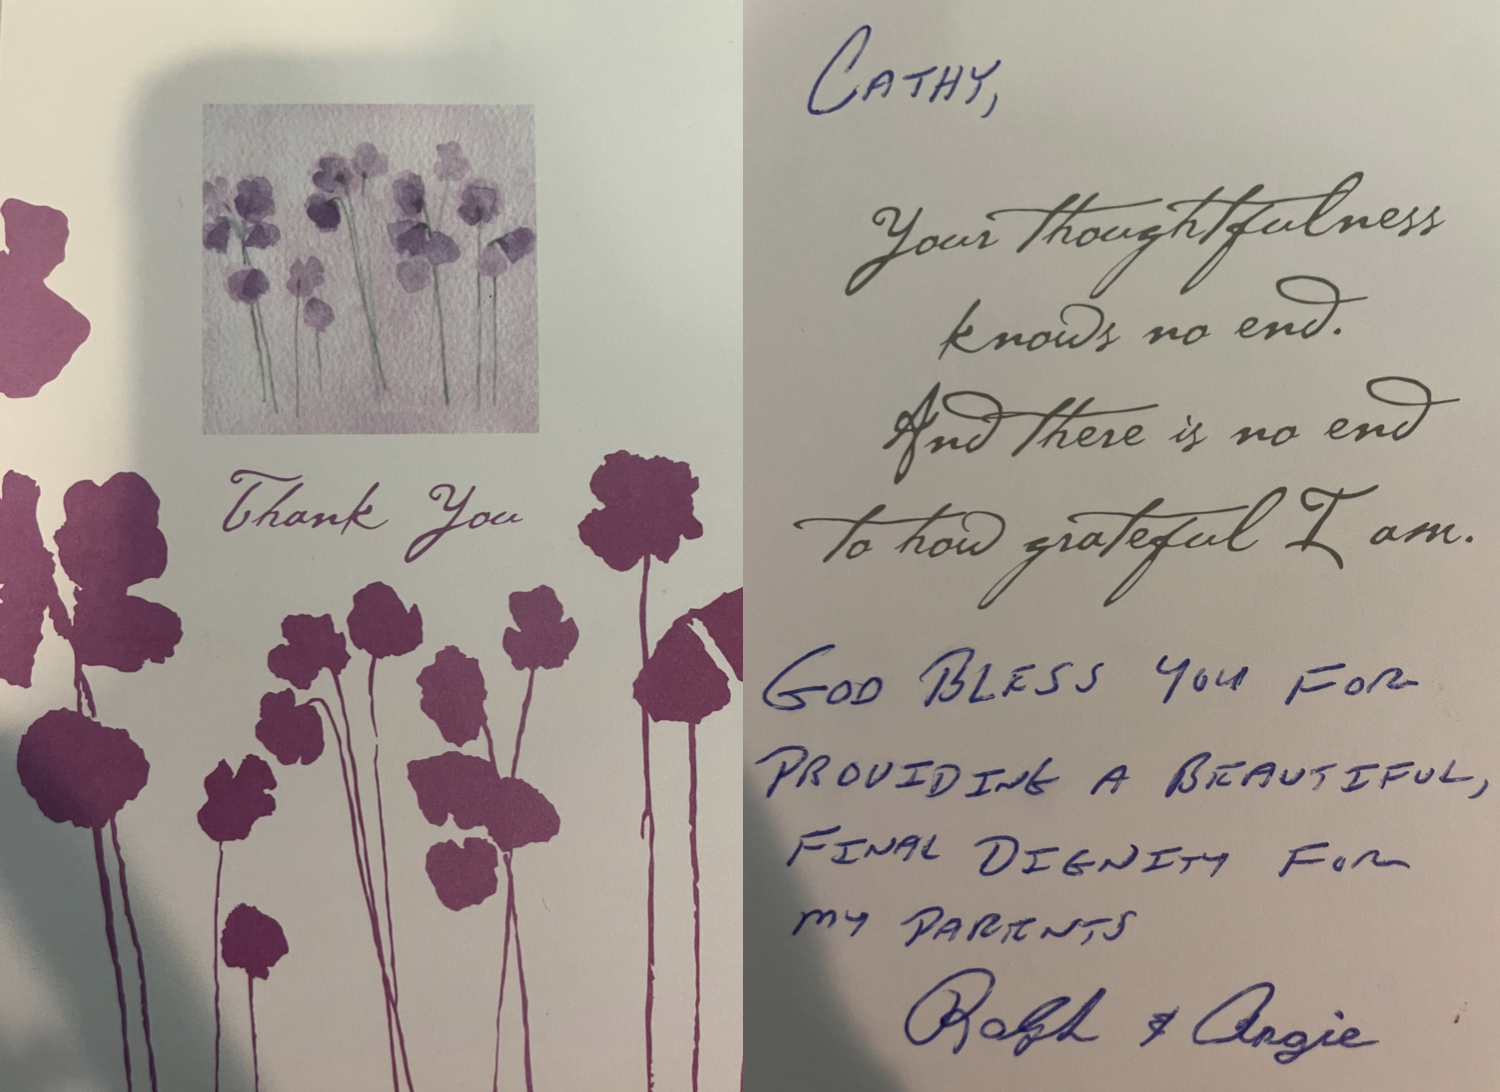 Thank You
CATHY,
Your thoughtfulness
knows no end.
And there is no end
to how grateful I am.
GOD BLESS YOU FOR
PROVIDING A BEAUTIFUL,
FINAL DIGNITY FOR
MY PARENTS
Ralph & Angie